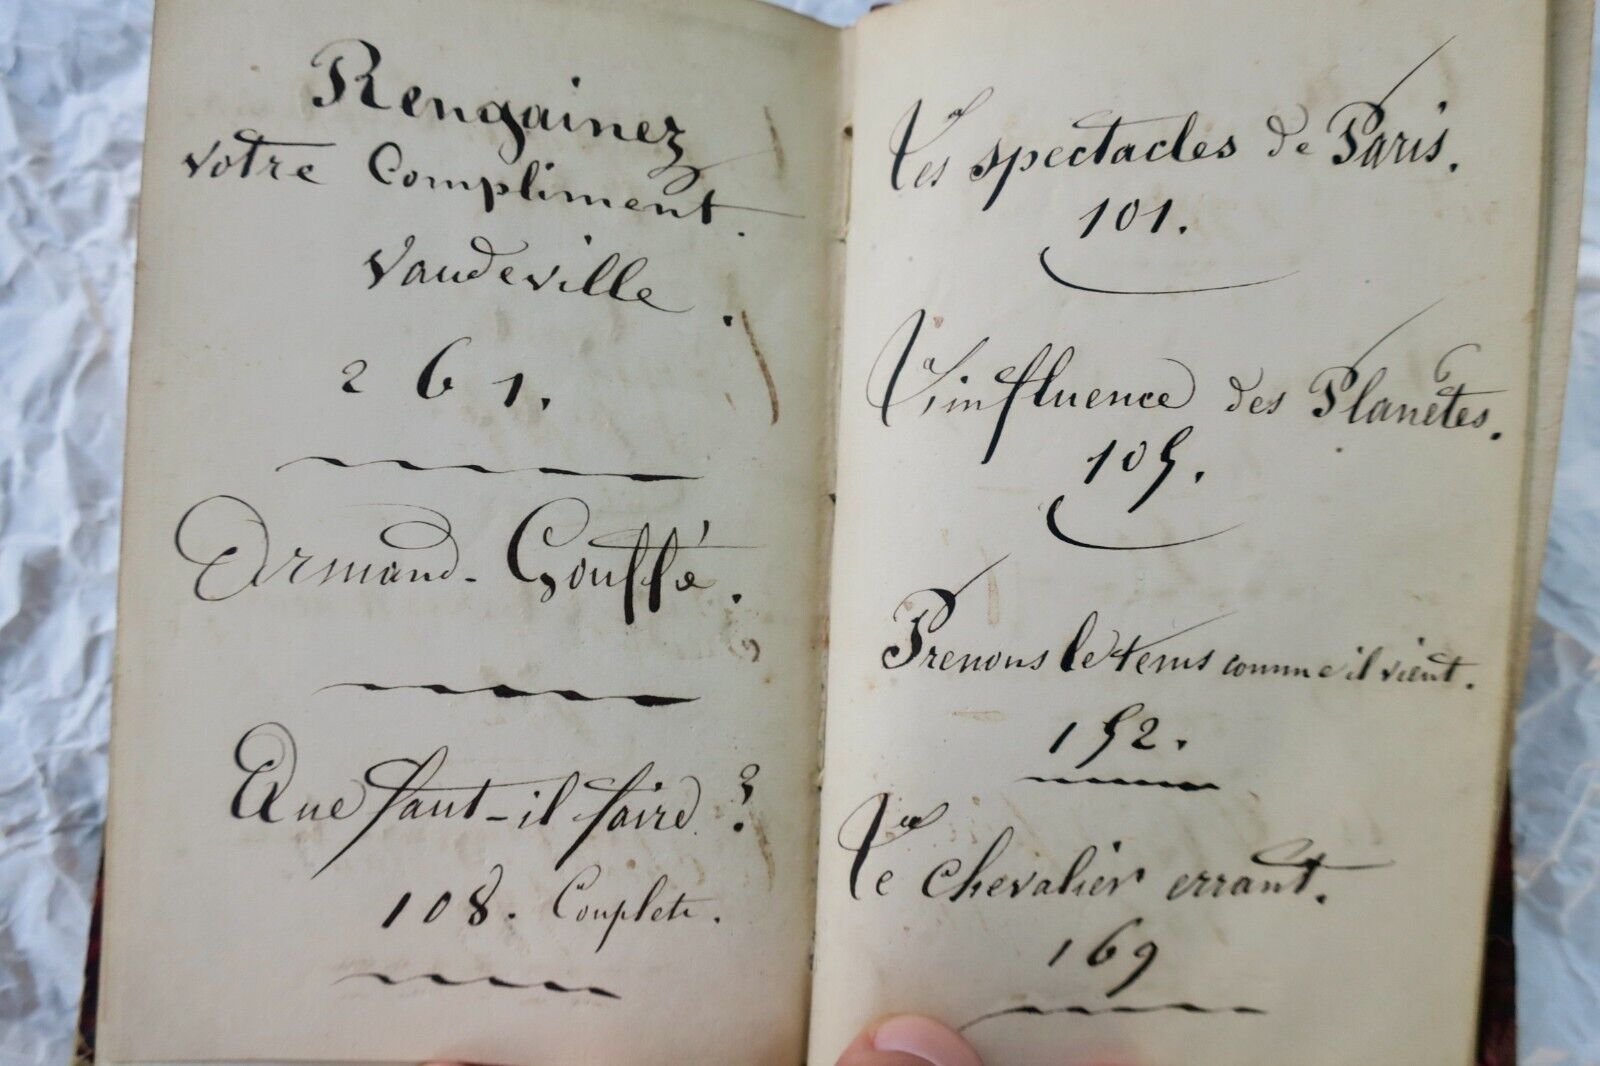 Rengainez
votre Compliment.
Vaudeville.
261.
Armand-Gouffé.
Que faut-il faire ?
108. Couplets.
Les spectacles de Paris.
101.
L'influence des Planètes.
105.
Prenons le tems comme il vient.
152.
Le Chevalier errant.
169